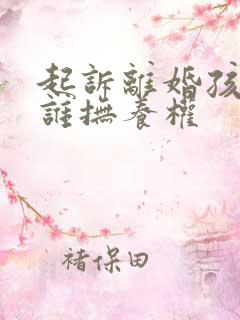 起訴離婚孩
誰撫養權
褚保田